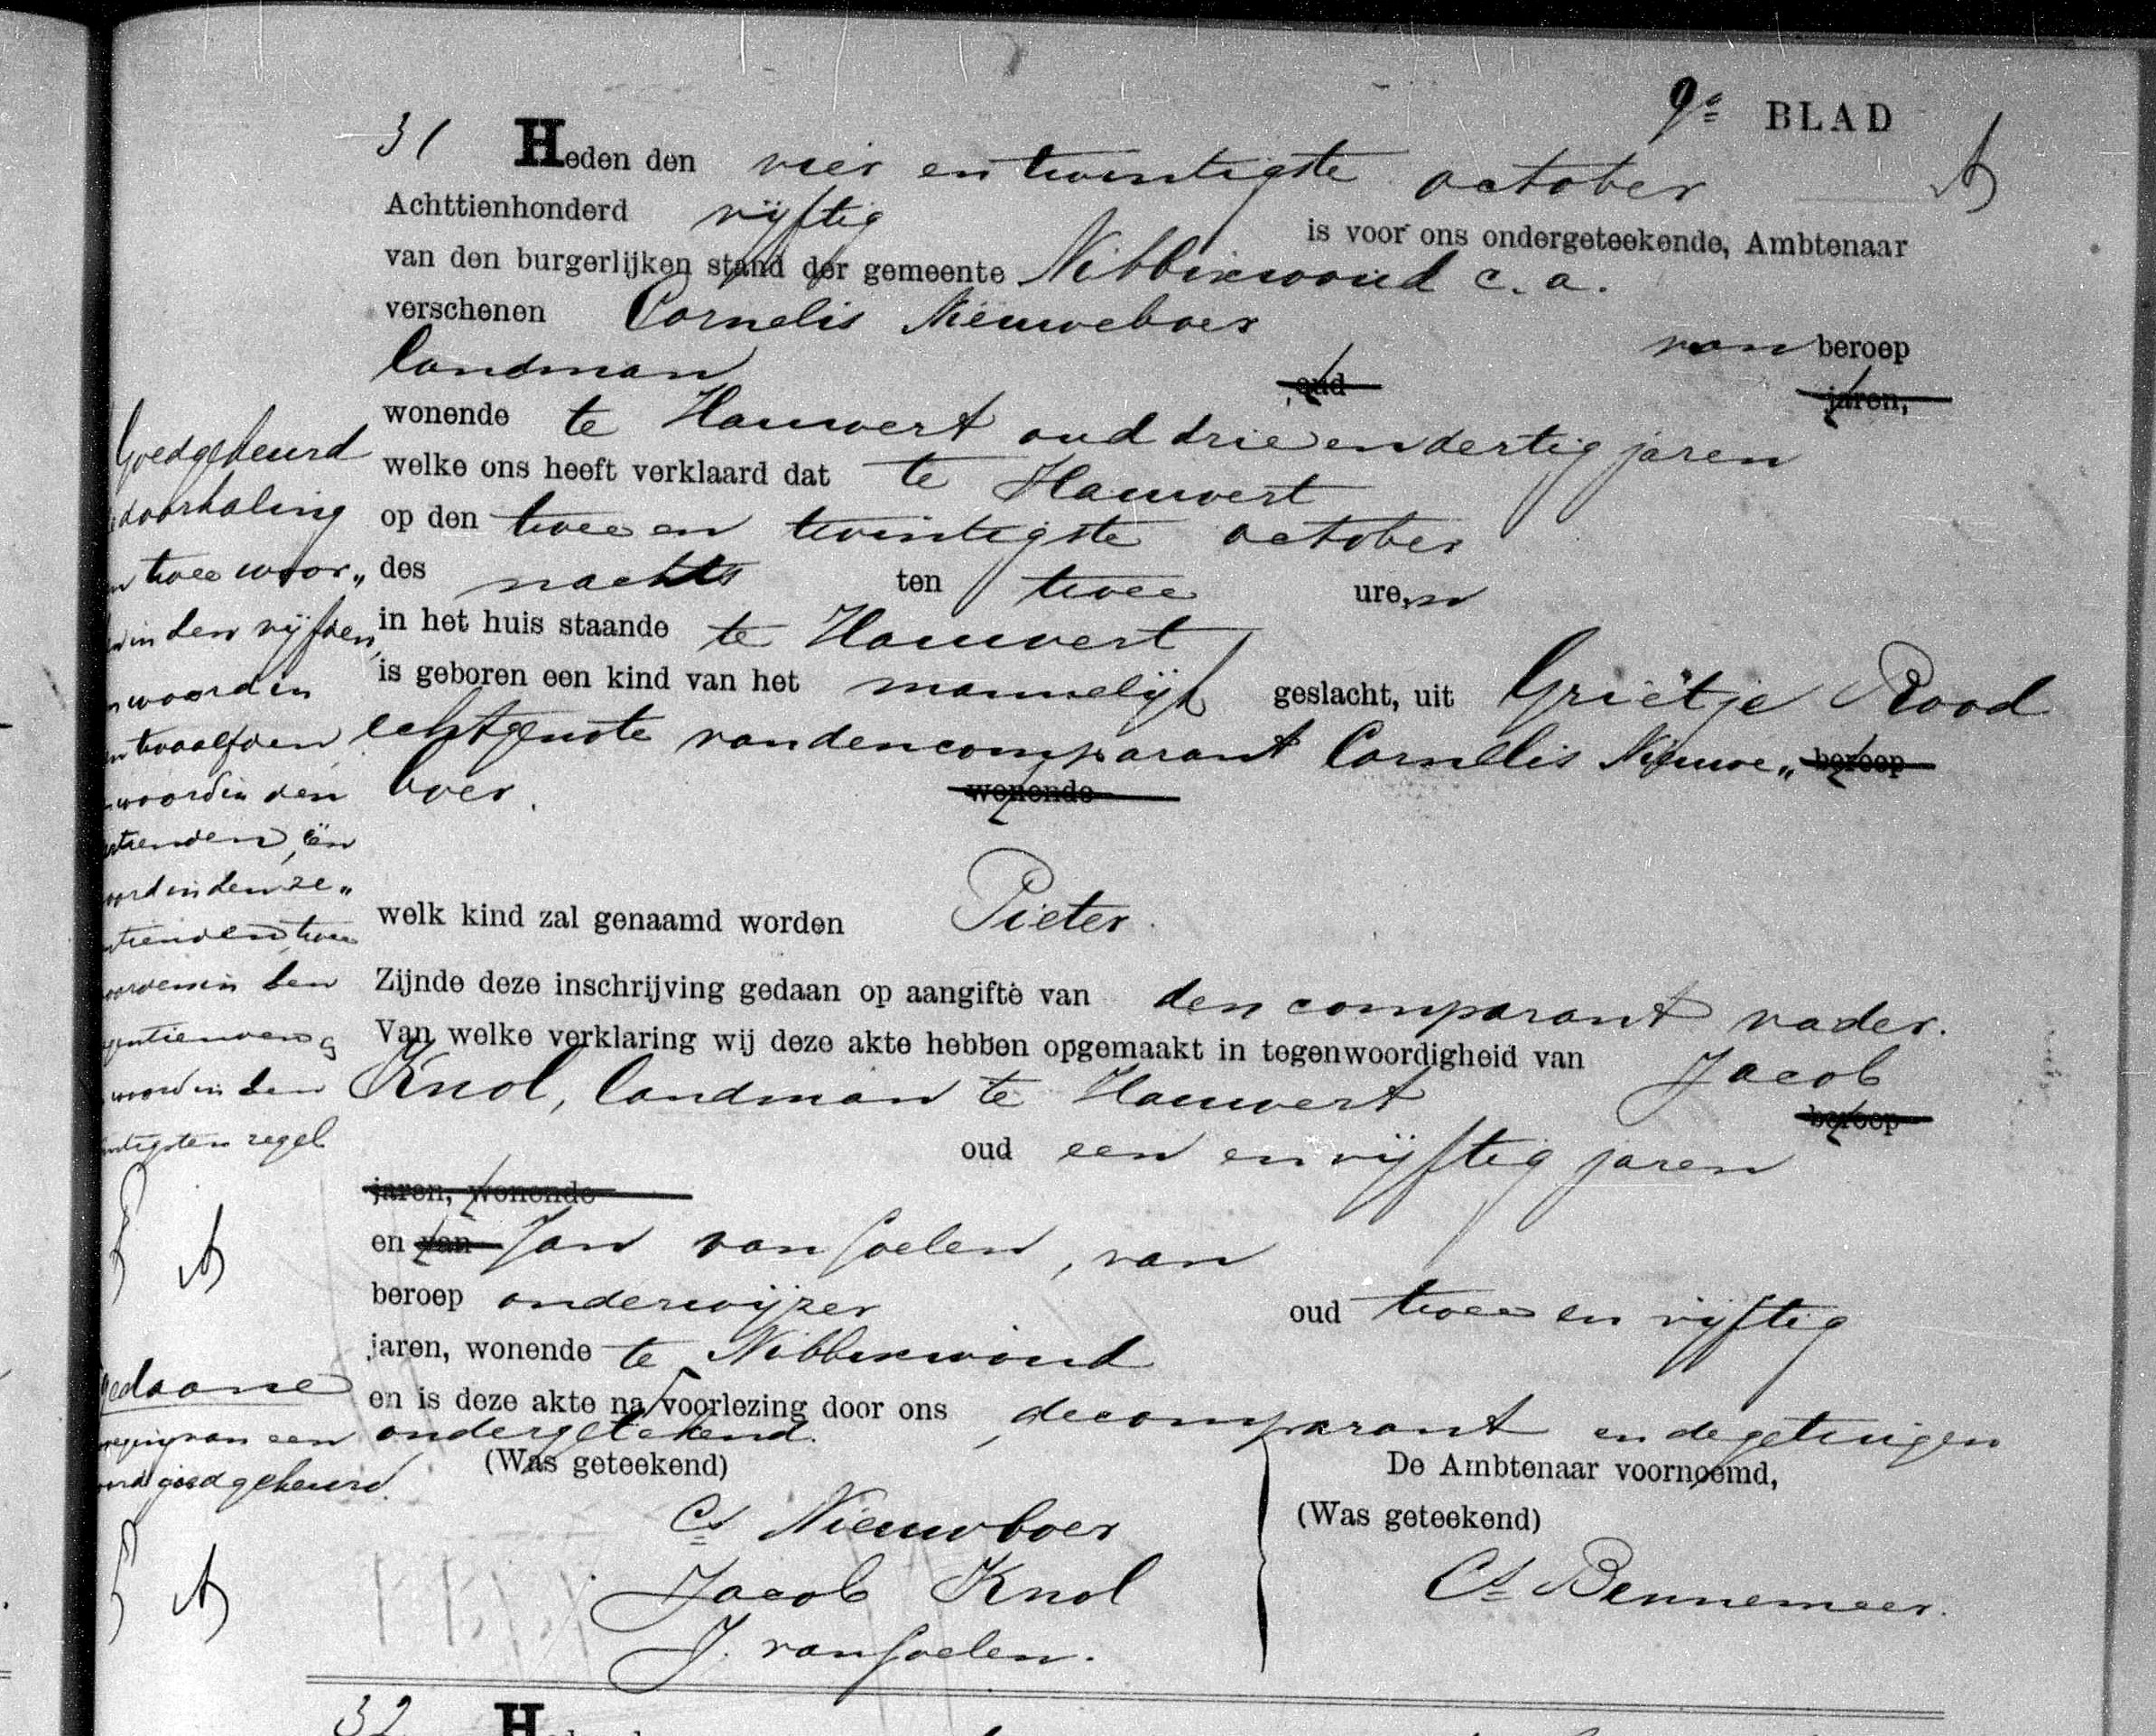 9e BLAD
31 Heden den vier en twintigste october
Achttienhonderd vijftig is voor ons ondergeteekende, Ambtenaar
van den burgerlijken stand der gemeente Nibbixwoud c. a.
verschenen Cornelis Nieuweboer van beroep
landman oud jaren,
wonende te Hauwert oud drie en dertig jaren
welke ons heeft verklaard dat te Hauwert
op den twee en twintigste october
des nachts ten twee uren
in het huis staande te Hauwert
is geboren een kind van het mannelijk geslacht, uit Grietje Rood
echtgenote van den comparant Cornelis Nieuwe„ beroep
boer. wonende
welk kind zal genaamd worden Pieter.
Zijnde deze inschrijving gedaan op aangifte van den comparant vader.
Van welke verklaring wij deze akte hebben opgemaakt in tegenwoordigheid van Jacob
Knol, landman te Hauwert beroep
oud een en vijftig jaren
jaren, wonende
en van Jan van Goelen, van
beroep onderwijzer oud twee en vijftig
jaren, wonende te Nibbixwoud
en is deze akte na voorlezing door ons, de comparant en de getuigen
ondergetekend.
(Was geteekend) De Ambtenaar voornoemd,
Cs Nieuwboer (Was geteekend)
Jacob Knol Cs Bennemeer.
J. van Goelen.
Goedgekeurd
doorhaling
twee woor„
in den vijfden,
woord in
twaalfden
woord in den
één
in den ze„
twee
den
woord in den
regel
gedaane
van een
goedgekeurd.
32 H